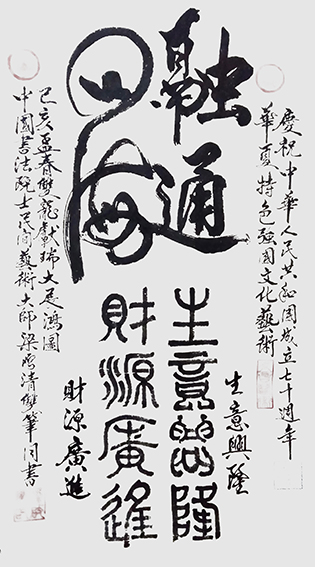 慶祝中華人民共和國成立七十週年
華夏特色強國文化藝術
融通
四海
生意興隆
生意興隆
財源廣進
財源廣進
己亥孟春雙龍獻瑞大展鴻圖
中國書法院士民間藝術大師梁清雙筆同書